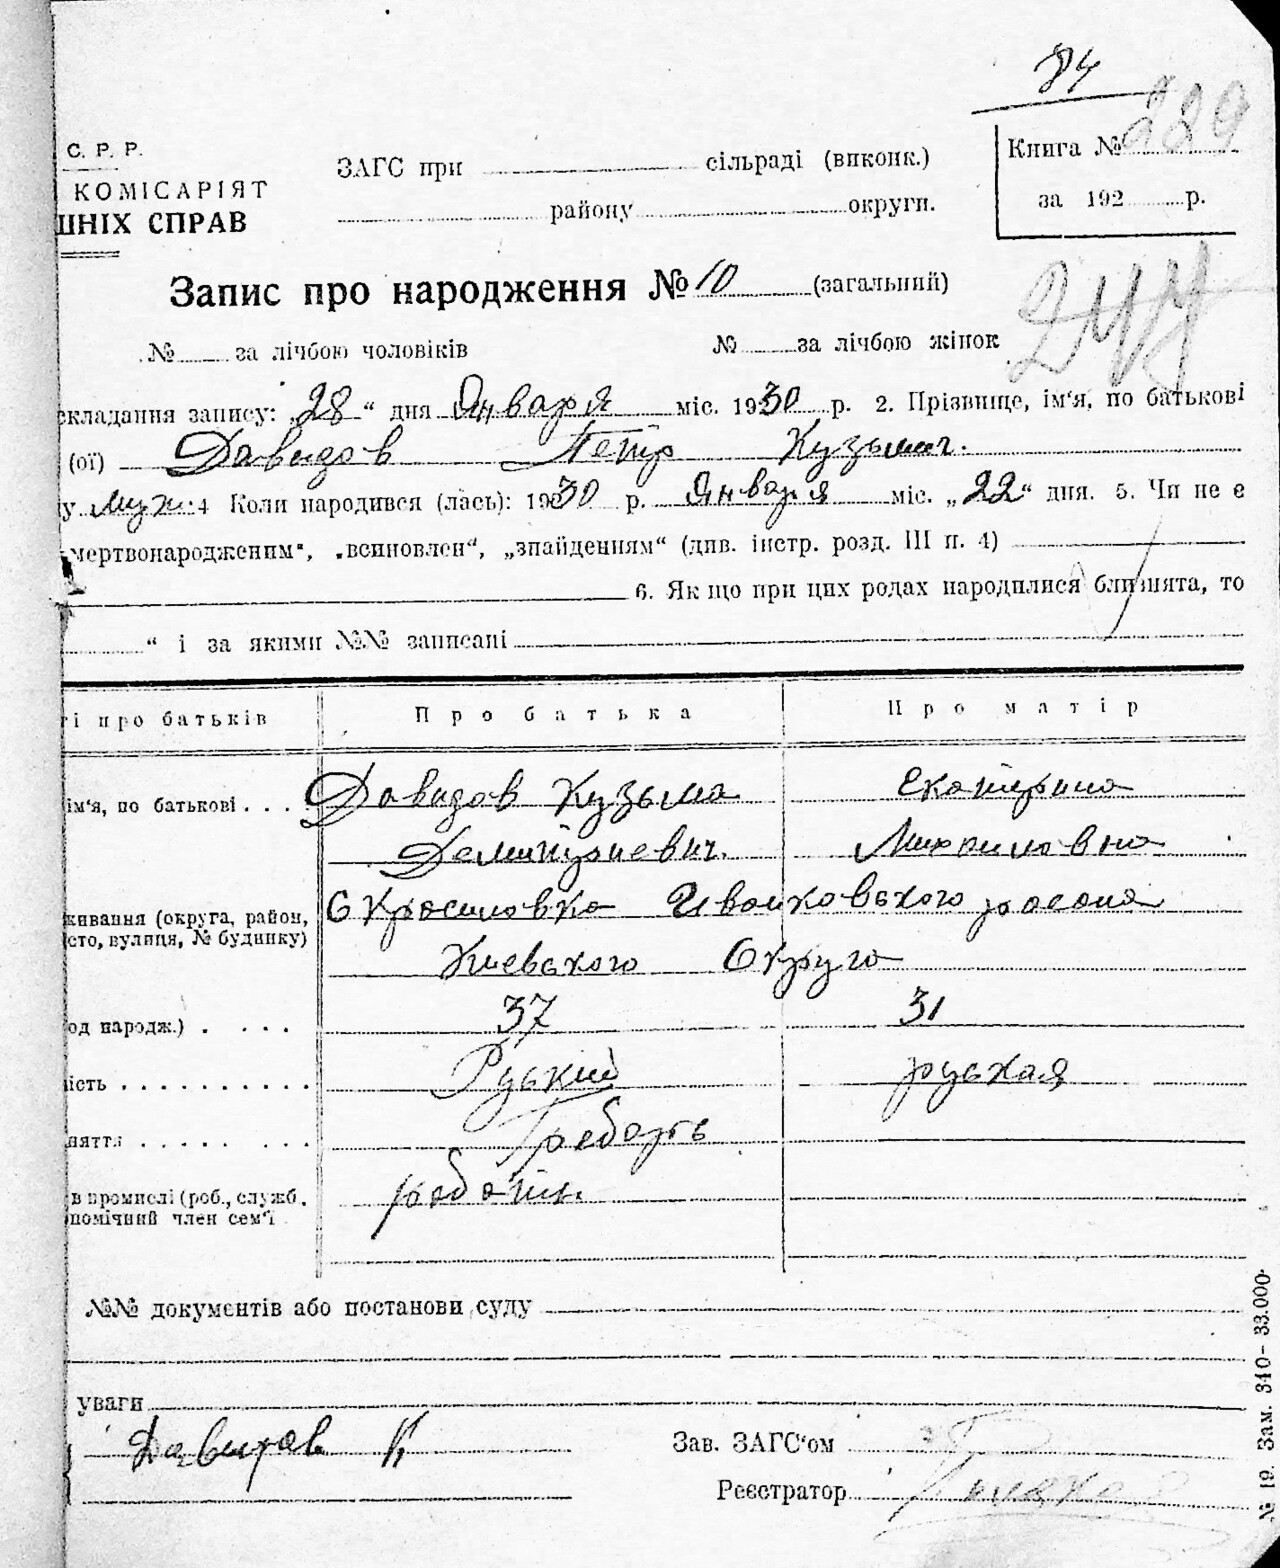 84
289
С. Р. Р.
КОМІСАРІЯТ
ШНІХ СПРАВ
ЗАГС при сільраді (виконк.)
району округи.
Книга №
за 192 р.
Запис про народження № 10 (загальний)
№ за лічбою чоловіків № за лічбою жінок
складання запису: „28“ дня Января міс. 1930 р. 2. Прізвище, ім‘я, по батькові
(ої) Давидов Петр Кузьмич.
у муж. 4 Коли народився (лась): 1930 р. Января міс. „22“ дня. 5. Чи не є
„мертвонародженим“, „всиновлен“, „знайденням“ (див. інстр. розд. III п. 4)
6. Як що при цих родах народилися близнята, то
“ і за якими №№ записані
і про батьків Про батька Про матір
ім‘я, по батькові . . . Давидов Кузьма Екатерина
Демитриевич. Михаиловна
живання (округа, район, С Красиловка Иванковского района
сто, вулиця, № будинку)
Киевского Округа
од народж.) . . . . 37 31
ість . . . . . . . . . . Руський руская
няття . . . . . . . . Грабарь
в промислі (роб., служб. работн.
помічний член сем‘ї
№№ документів або постанови суду
уваги
Давидов К
Зав. ЗАГС‘ом
Реєстратор
№ 19. Зам. 340– 33.000.